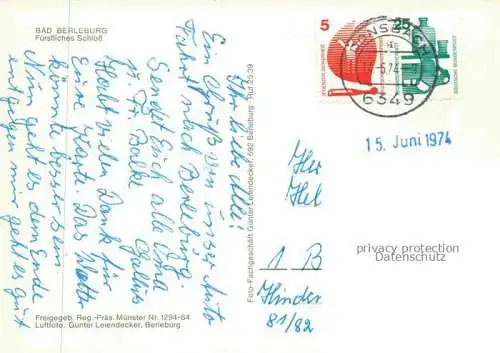 BAD BERLEBURG
Fürstliches Schloß
Ihr liebe Alle!
Ein Gruß von unser Auto
Fahrt nach Berleburg.
Sendet Euch alle Oma
u. Fr. Balke
Habt vielen Dank für
Eure Karte. Das Wetter
könnte besser sein
Nun geht es dem Ende
entgegen mir geht es gut
Freigegeb. Reg.-Präs. Münster Nr. 1294-64
Luftfoto: Günter Leiendecker, Berleburg
Foto-Fachgeschäft Günter Leiendecker, 592 Berleburg · Ruf 20 39
5
25
6349
15. Juni 1974
1 B
81/82
privacy protection
Datenschutz